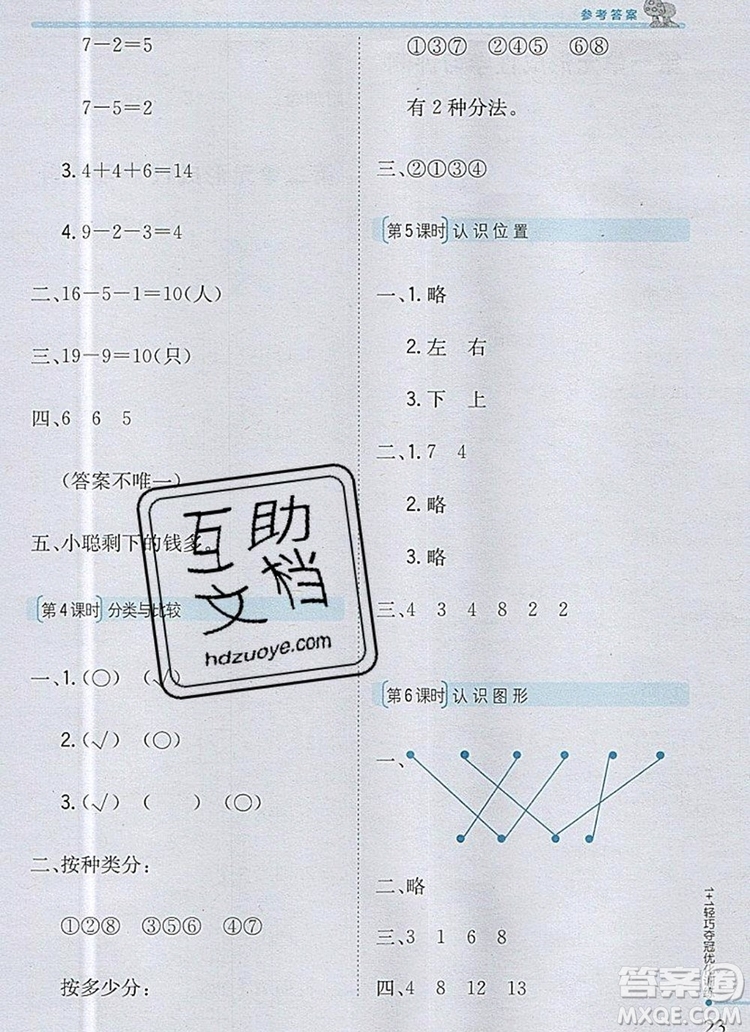 参考答案
7－2＝5
7－5＝2
3. 4＋4＋6＝14
4. 9－2－3＝4
二、16－5－1＝10(人)
三、19－9＝10(只)
四、6 6 5
(答案不唯一)
五、小聪剩下的钱多。
第4课时 分类与比较
一、1.(○) (√)
2.(√) (○)
3.(√) ( ) (○)
二、按种类分：
①②⑧ ③⑤⑥ ④⑦
按多少分：
①③⑦ ②④⑤ ⑥⑧
有2种分法。
三、②①③④
第5课时 认识位置
一、1. 略
2. 左 右
3. 下 上
二、1. 7 4
2. 略
3. 略
三、4 3 4 8 2 2
第6课时 认识图形
一、
二、略
三、3 1 6 8
四、4 8 12 13
1+1轻巧夺冠优
23
互助
文档
hdzuoye.com
答案圈
MXQE.COM